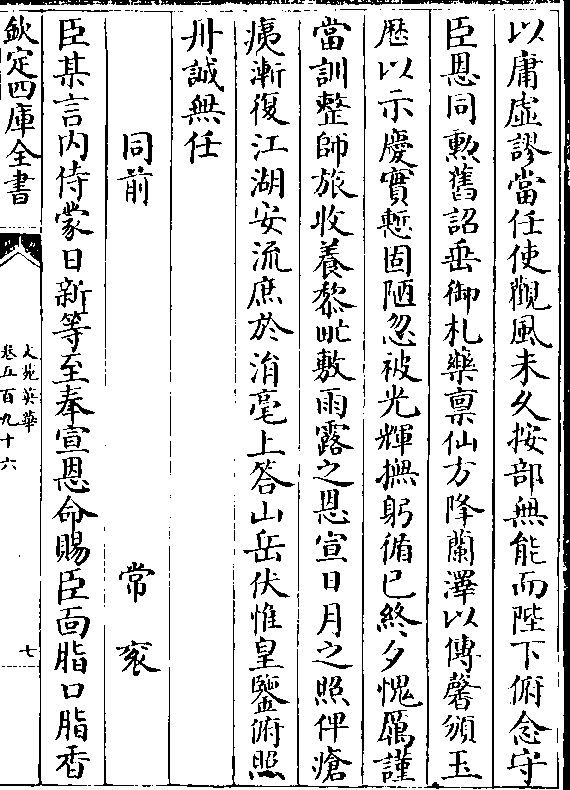 以庸虛謬當任使觀風未久按部無能而陛下俯念守
臣恩同勲舊詔垂御札藥稟仙方降蘭澤以傳馨頒玉
歴以示慶實慙固陋忽被光輝撫躬循已終夕愧厲謹
當訓整師旅收養黎甿敷雨露之恩宣日月之照俾瘡
痍漸復江湖安流庶於涓毫上答山岳伏惟皇鑒俯照
丹誠無任
同前 常衮
臣某言内侍蒙日新等至奉宣恩命賜臣面脂口脂香
欽定四庫全書
文苑英華
卷五百九十六
七